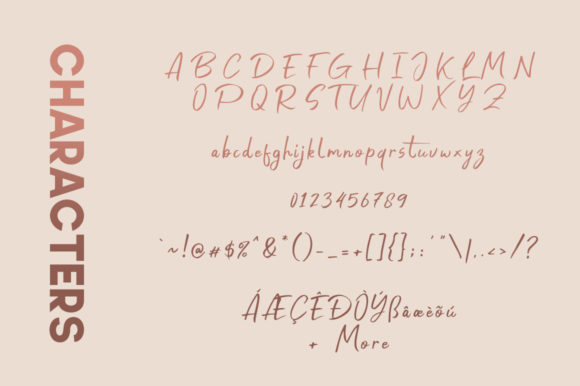 CHARACTERS
A B C D E F G H I J K L M N
O P Q R S T U V W X Y Z
abcdefghijklmnopqrstuvwxyz
0123456789
`~!@#$%^&*()-_=+[]{};:'"\|,.<>/?
ÁÆÇÊÐÒÝßâæèõú
+ More